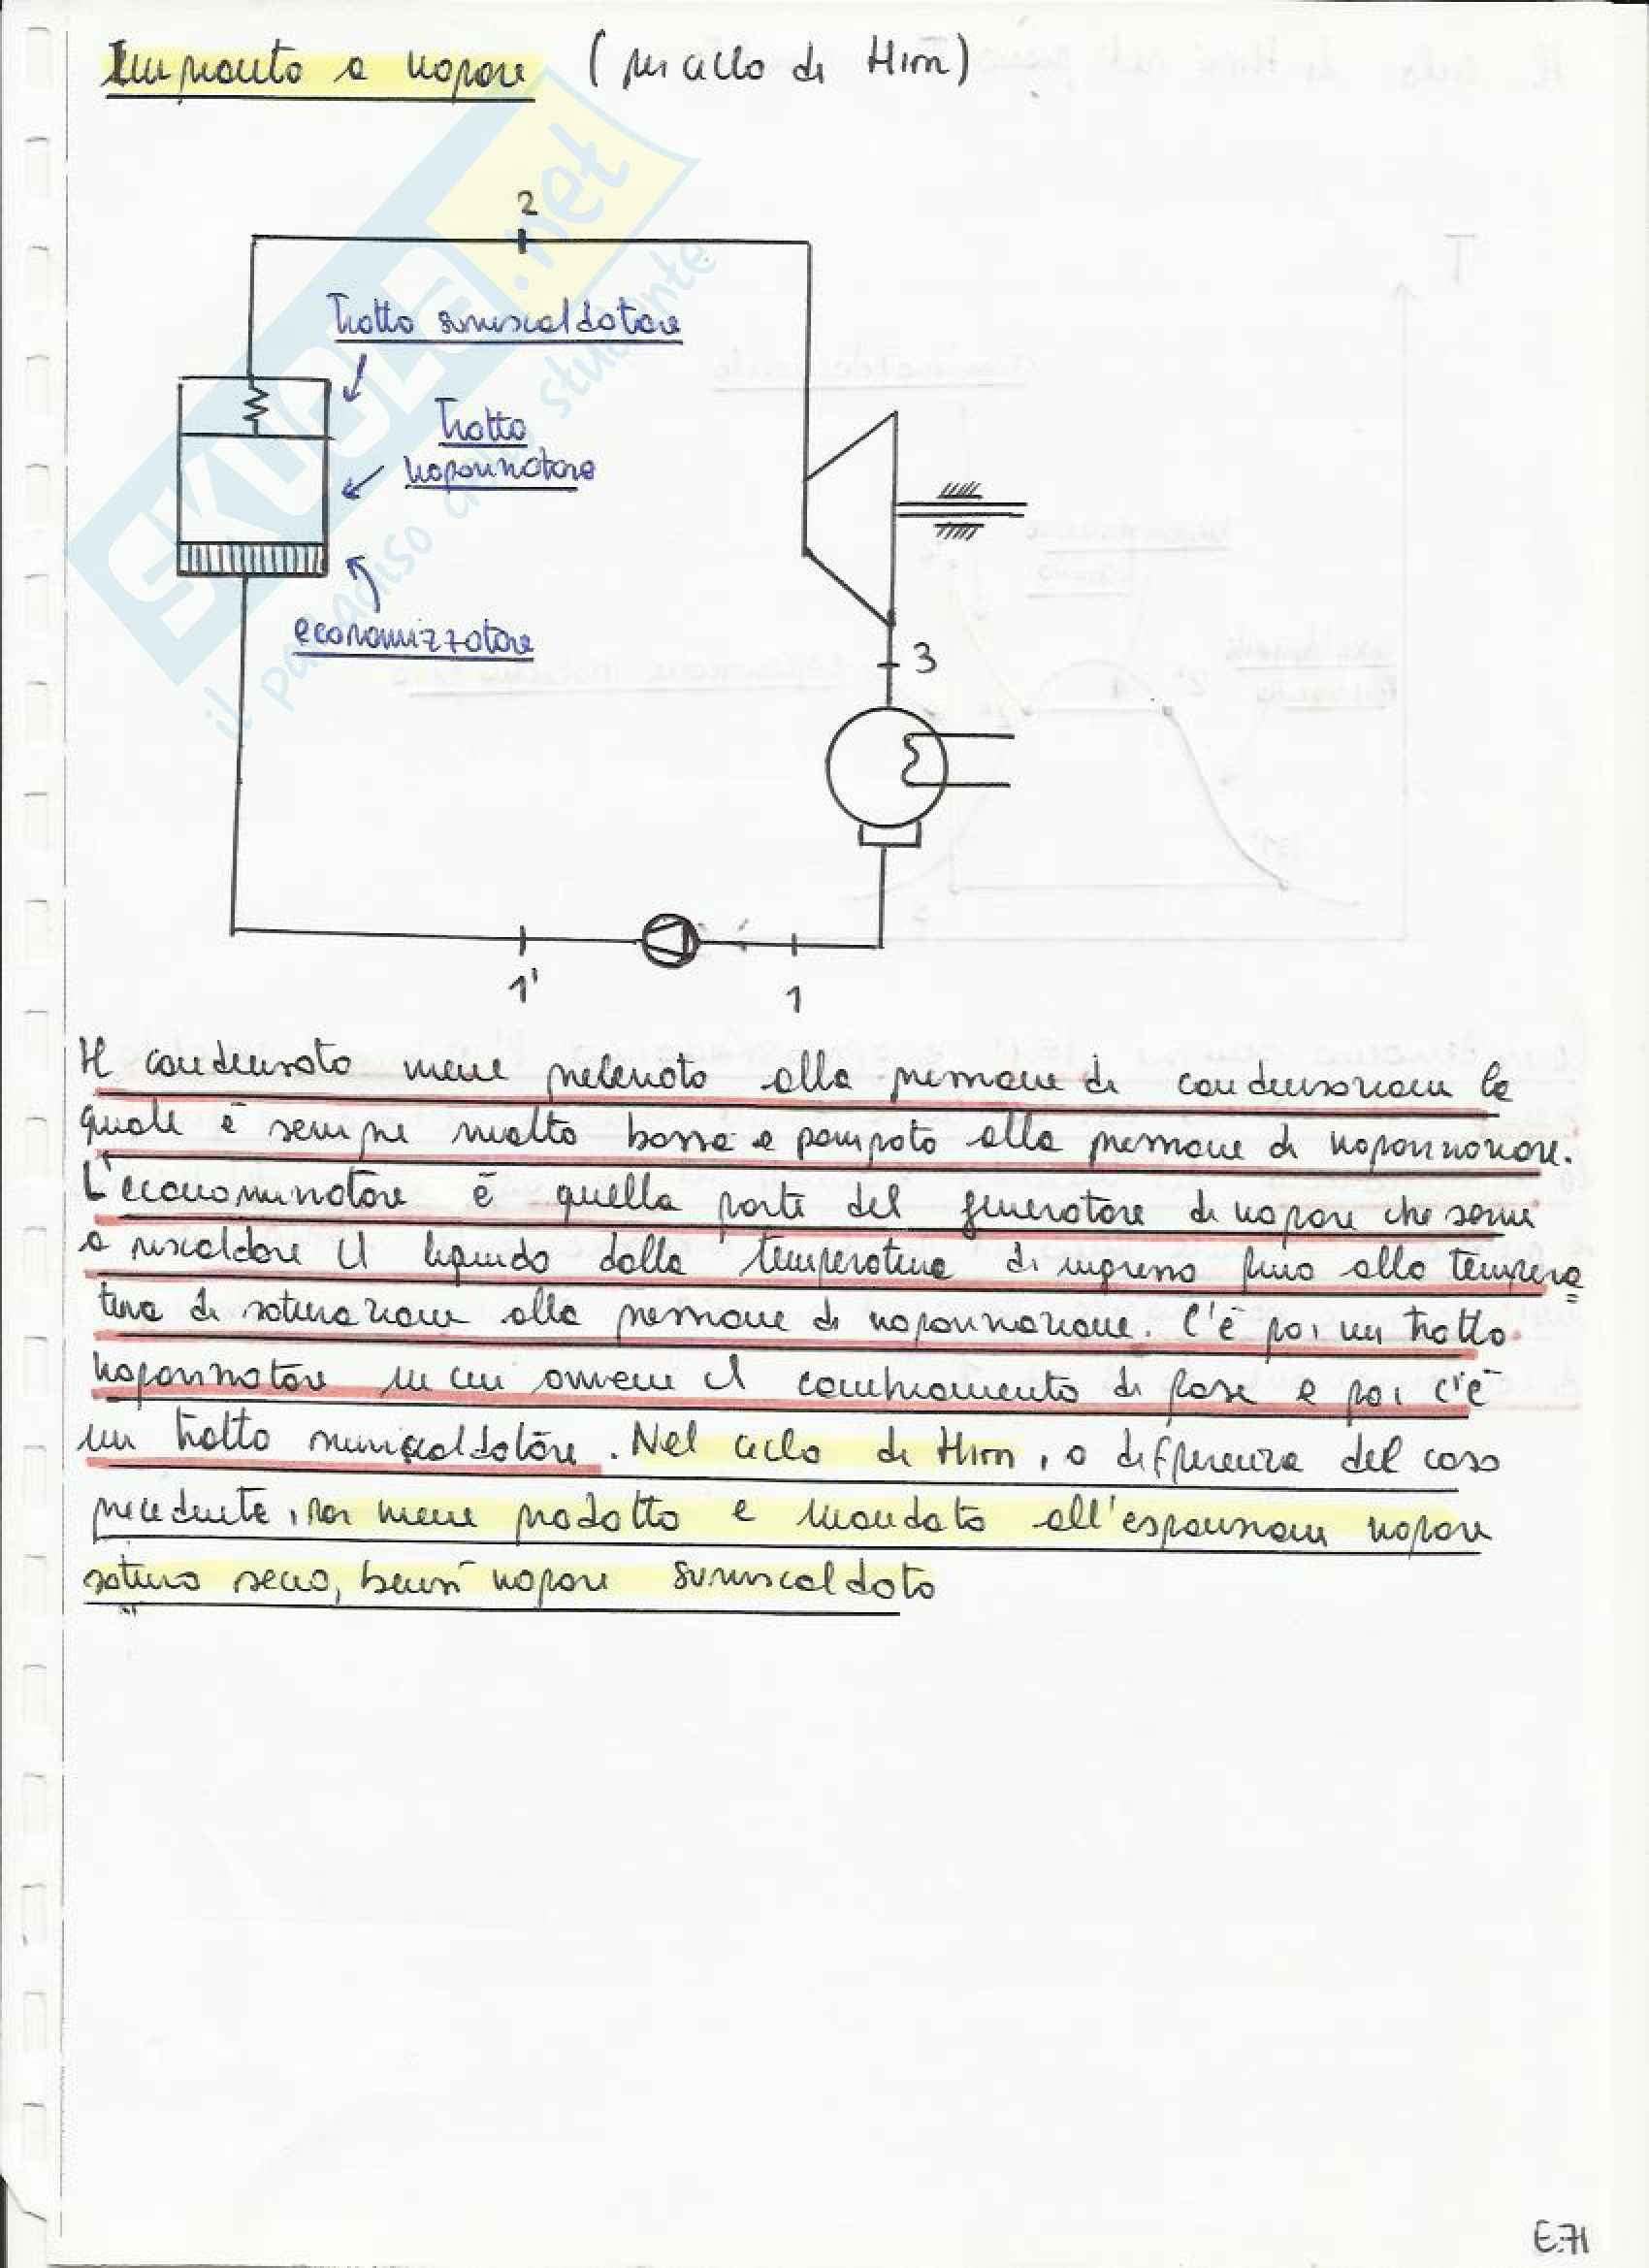 Impianto a vapore (per ciclo di Hirn)
2
Tratto surriscaldatore
Tratto
vaporizzatore
economizzatore
3
1'
1
Il condensato viene prelevato alla pressione di condensazione la
quale è sempre molto bassa e pompato alla pressione di vaporizzazione.
L'economizzatore è quella parte del generatore di vapore che serve
a riscaldare il liquido dalla temperatura di ingresso fino alla tempera=
tura di saturazione alla pressione di vaporizzazione. C'è poi un tratto
vaporizzatore in cui avviene il cambiamento di fase e poi c'è
un tratto surriscaldatore. Nel ciclo di Hirn, a differenza del caso
precedente, non viene prodotto e mandato all'espansione vapore
saturo secco, bensì vapore surriscaldato
E.71
SKUOLA.net
il paradiso dello studente